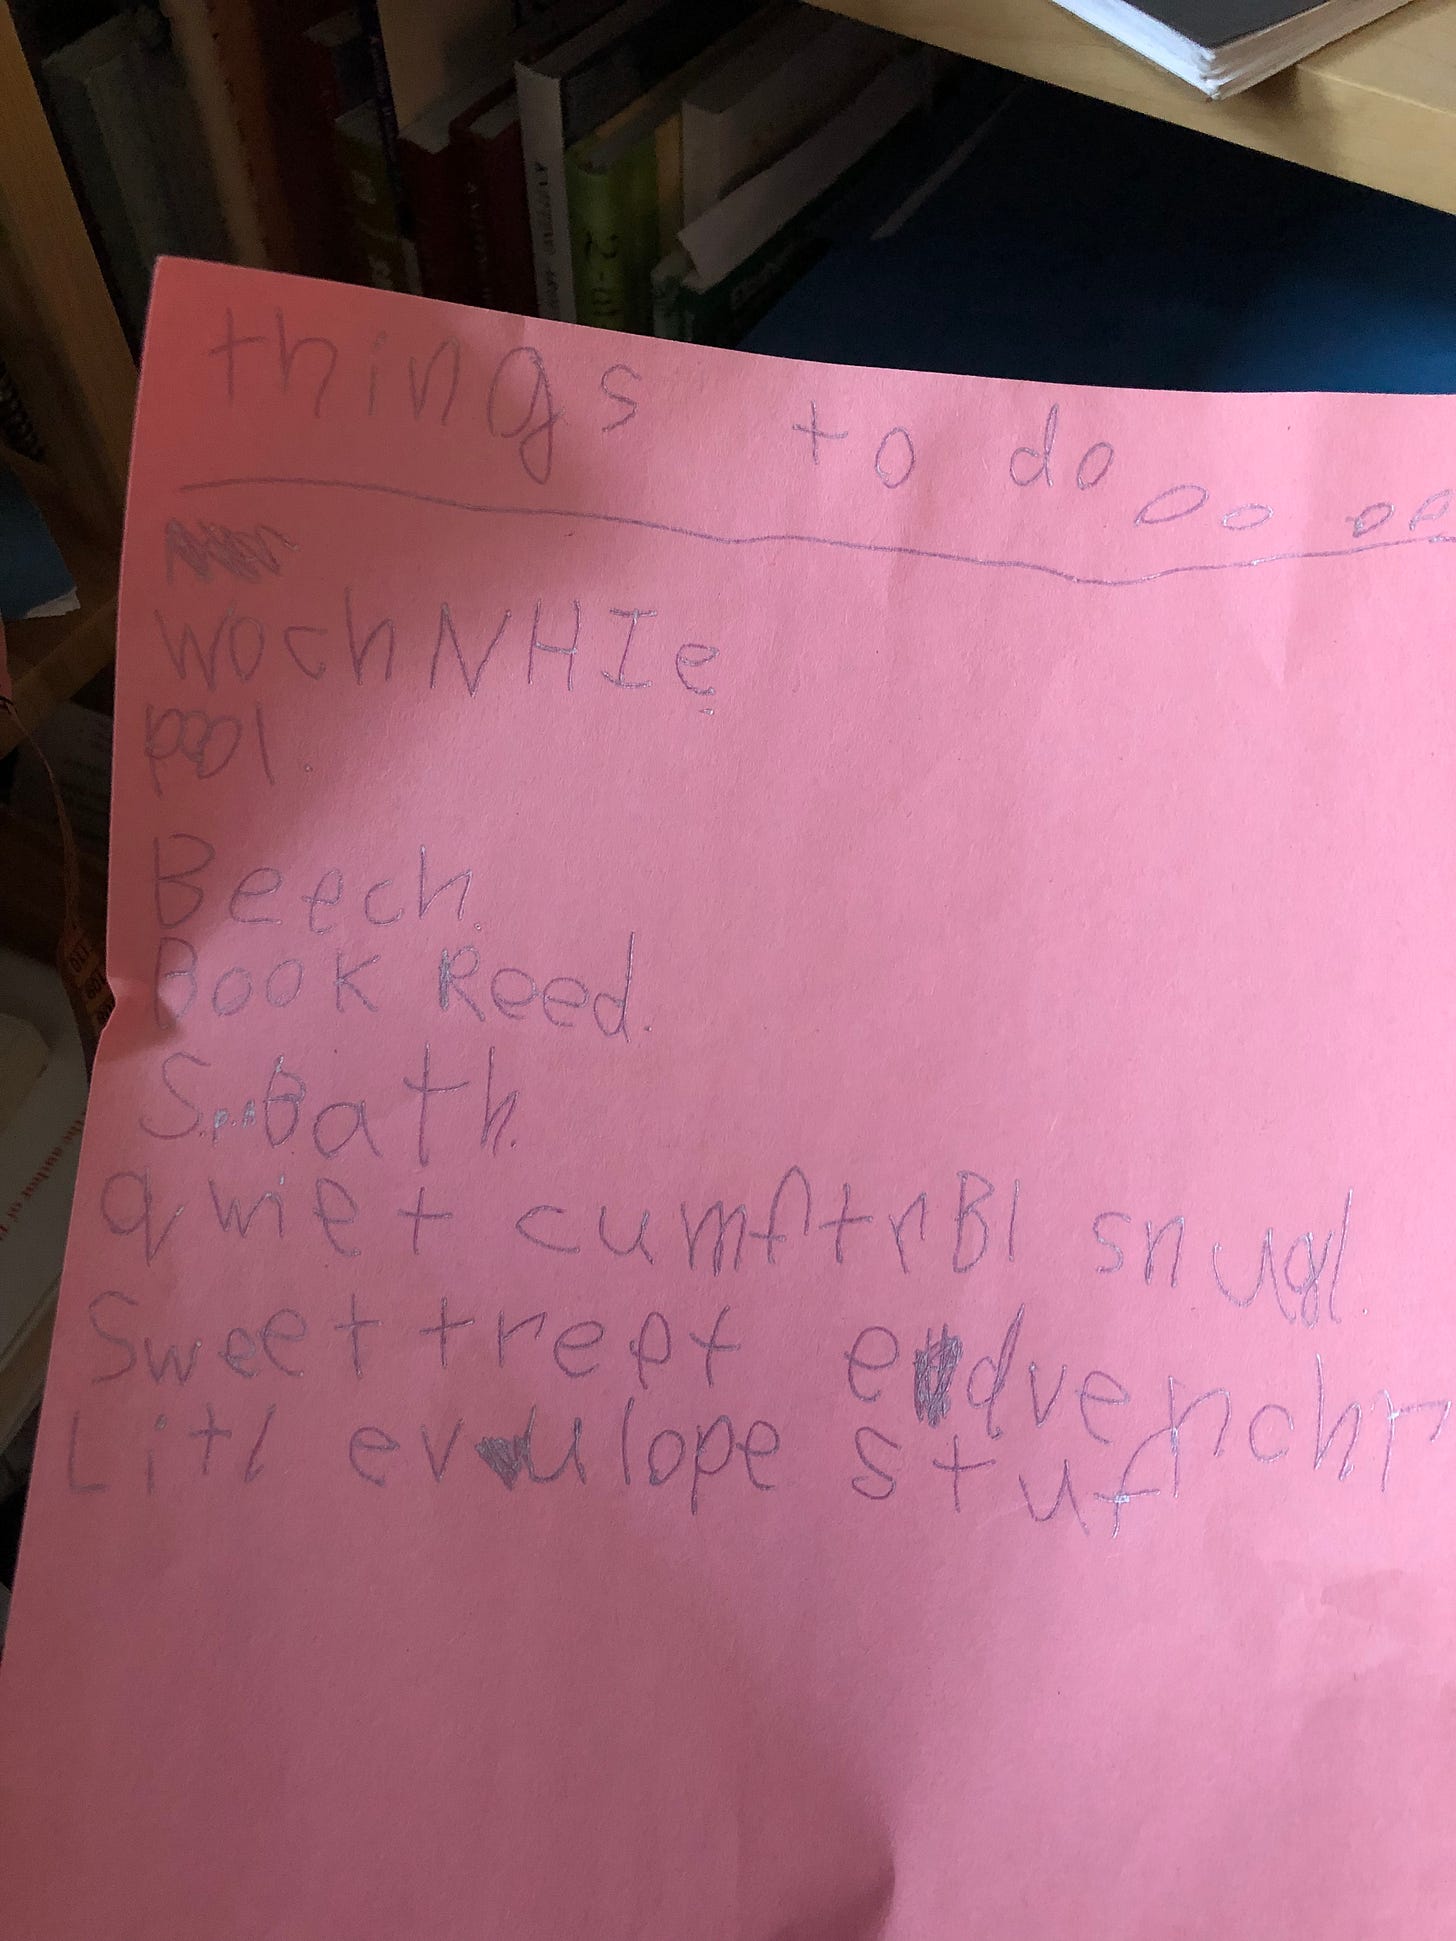 things to do
woch NHIe
pool.
Beech.
Book Reed.
S.p.a Bath.
qwiet cumftrBl snugl.
Sweet treet edvenchr
Litl evulope stuf